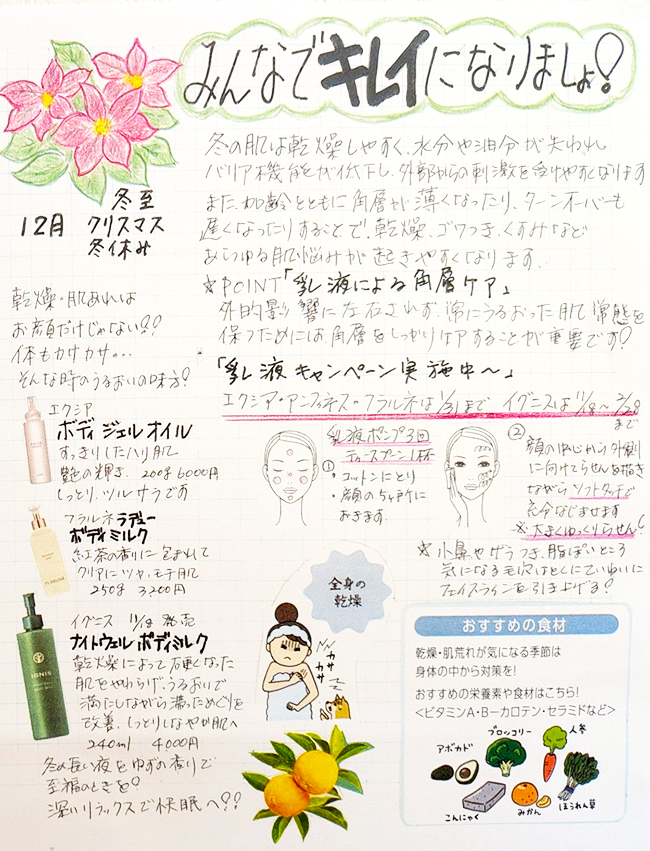 みんなでキレイになりましょ!
冬の肌は乾燥しやすく、水分や油分が失われ
バリア機能が低下し、外部からの刺激を受けやすくなります
また、加齢とともに角層が薄くなったり、ターンオーバーも
遅くなったりすることで、乾燥、ゴワつき、くすみなど
あらゆる肌悩みが起きやすくなります。
☆POINT「乳液による角層ケア」
外的影響に左右されず、常にうるおった肌状態を
保つためには角層をしっかりケアすることが重要です!
「乳液キャンペーン実施中〜」
エクシア・アンフィネス・フラルネは1/31まで イグニスは11/18〜2/28まで
12月
冬至
クリスマス
冬休み
乾燥・肌あれは
お顔だけじゃない!!
体もカサカサ…
そんな時のうるおいの味方!
エクシア
ボディ ジェル オイル
すっきりしたハリ肌で
艶の輝き. 200g 6000円
しっとり、ツルサラです
フラルネ ラデュー
ボディミルク
紅茶の香りに包まれて
クリアにツヤ、モテ肌て
250g 3,200円
イグニス 11/18 発売
ナイトウェル ボディミルク
乾燥によって硬くなった
肌をやわらげ、うるおいで
満たしながら滞っためぐりを
改善、しっとりしなやか肌へ
240ml 4000円
冬の長い夜をゆずの香りで
至福のときを!
深いリラックスで快眠へ!!
乳液ポンプ3回
ティースプーン1杯
①
・コットンにとり
・顔の5ヶ所に
おきます.
②
顔の中心から外側
に向けてらせんを描き
ながらソフトタッチで
充分なじませます
※大きくゆっくりらせん!
☆小鼻やザラつき、脂っぽいところ
気になる毛穴はとくにていねいに
フェイスラインを引き上げる!
全身の
乾燥
カサ
カサ
おすすめの食材
乾燥・肌荒れが気になる季節は
身体の中から対策を!
おすすめの栄養素や食材はこちら!
<ビタミンA・B-カロテン・セラミドなど>
アボカド
ブロッコリー
人参
こんにゃく
みかん
ほうれん草
FLALUNE
IGNIS